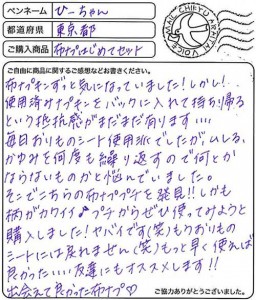 ペンネーム ぴーちゃん
都道府県 東京都
ご購入商品 布ナプはじめてセット
MAIL CHIEYU ARATAI VOICE
ご自由に商品に関するご感想などお書きください。
布ナプキンずっと気になっていました!しかし!
使用済みナプキンをバックに入れて持ち帰る
という抵抗感がまだまだ有ります・・・・
毎日おりものシート使用派でしたが、ムレる、
かゆみを何度も繰り返すので何とか
ならないものかと悩んでいました。
そこでこちらの布ナププチを発見!!しかも
柄がカワイイ♪プチからぜひ使ってみようと
購入しました!ヤバイです(笑)もうおりもの
シートには戻れません(笑)もっと早く使れば
良かった・・・・友達にもオススメします!!
出会えて良かった布ナプ♡
ご協力ありがとうございました。